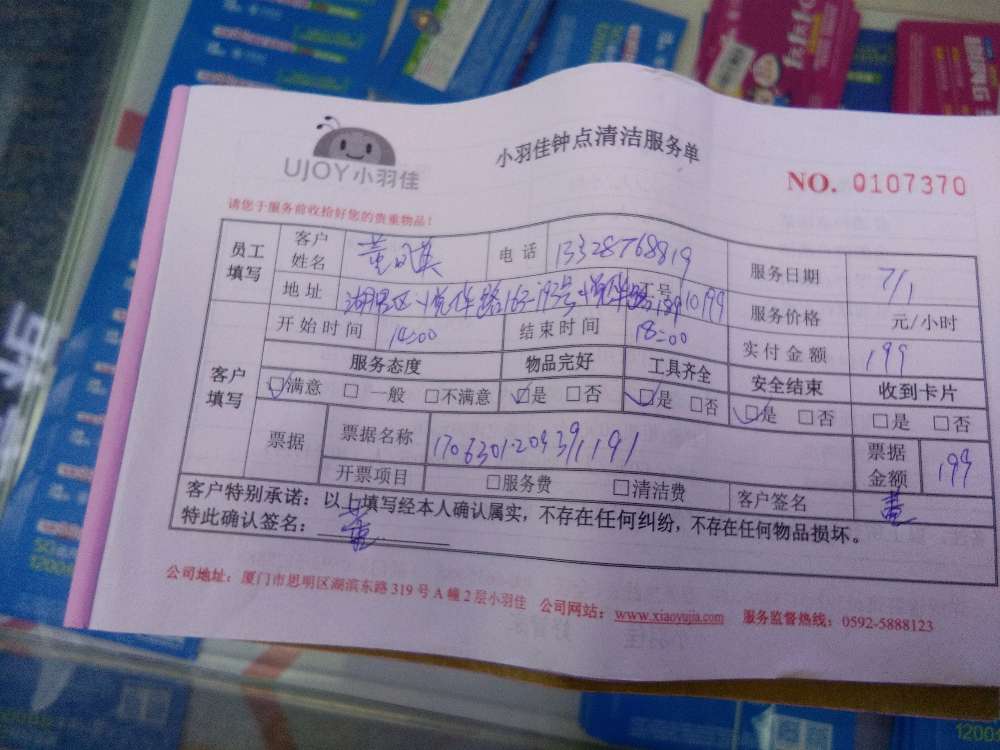 UJOY小羽佳
小羽佳钟点清洁服务单
NO. 0107370
请您于服务前收拾好您的贵重物品！
员工填写
客户姓名
电话 13328768819
服务日期 7/1
地址
服务价格 元/小时
开始时间 14:00 结束时间 18:00
实付金额 199
客户填写
服务态度 物品完好 工具齐全 安全结束 收到卡片
☑满意 □一般 □不满意 ☑是 □否 ☑是 □否 ☑是 □否 □是 □否
票据
票据名称
票据金额 199
开票项目 □服务费 □清洁费 客户签名 董
客户特别承诺：以上填写经本人确认属实，不存在任何纠纷，不存在任何物品损坏。
特此确认签名： 董
公司地址：厦门市思明区湖滨东路319号A幢2层小羽佳 公司网站：www.xiaoyujia.com 服务监督热线：0592-5888123